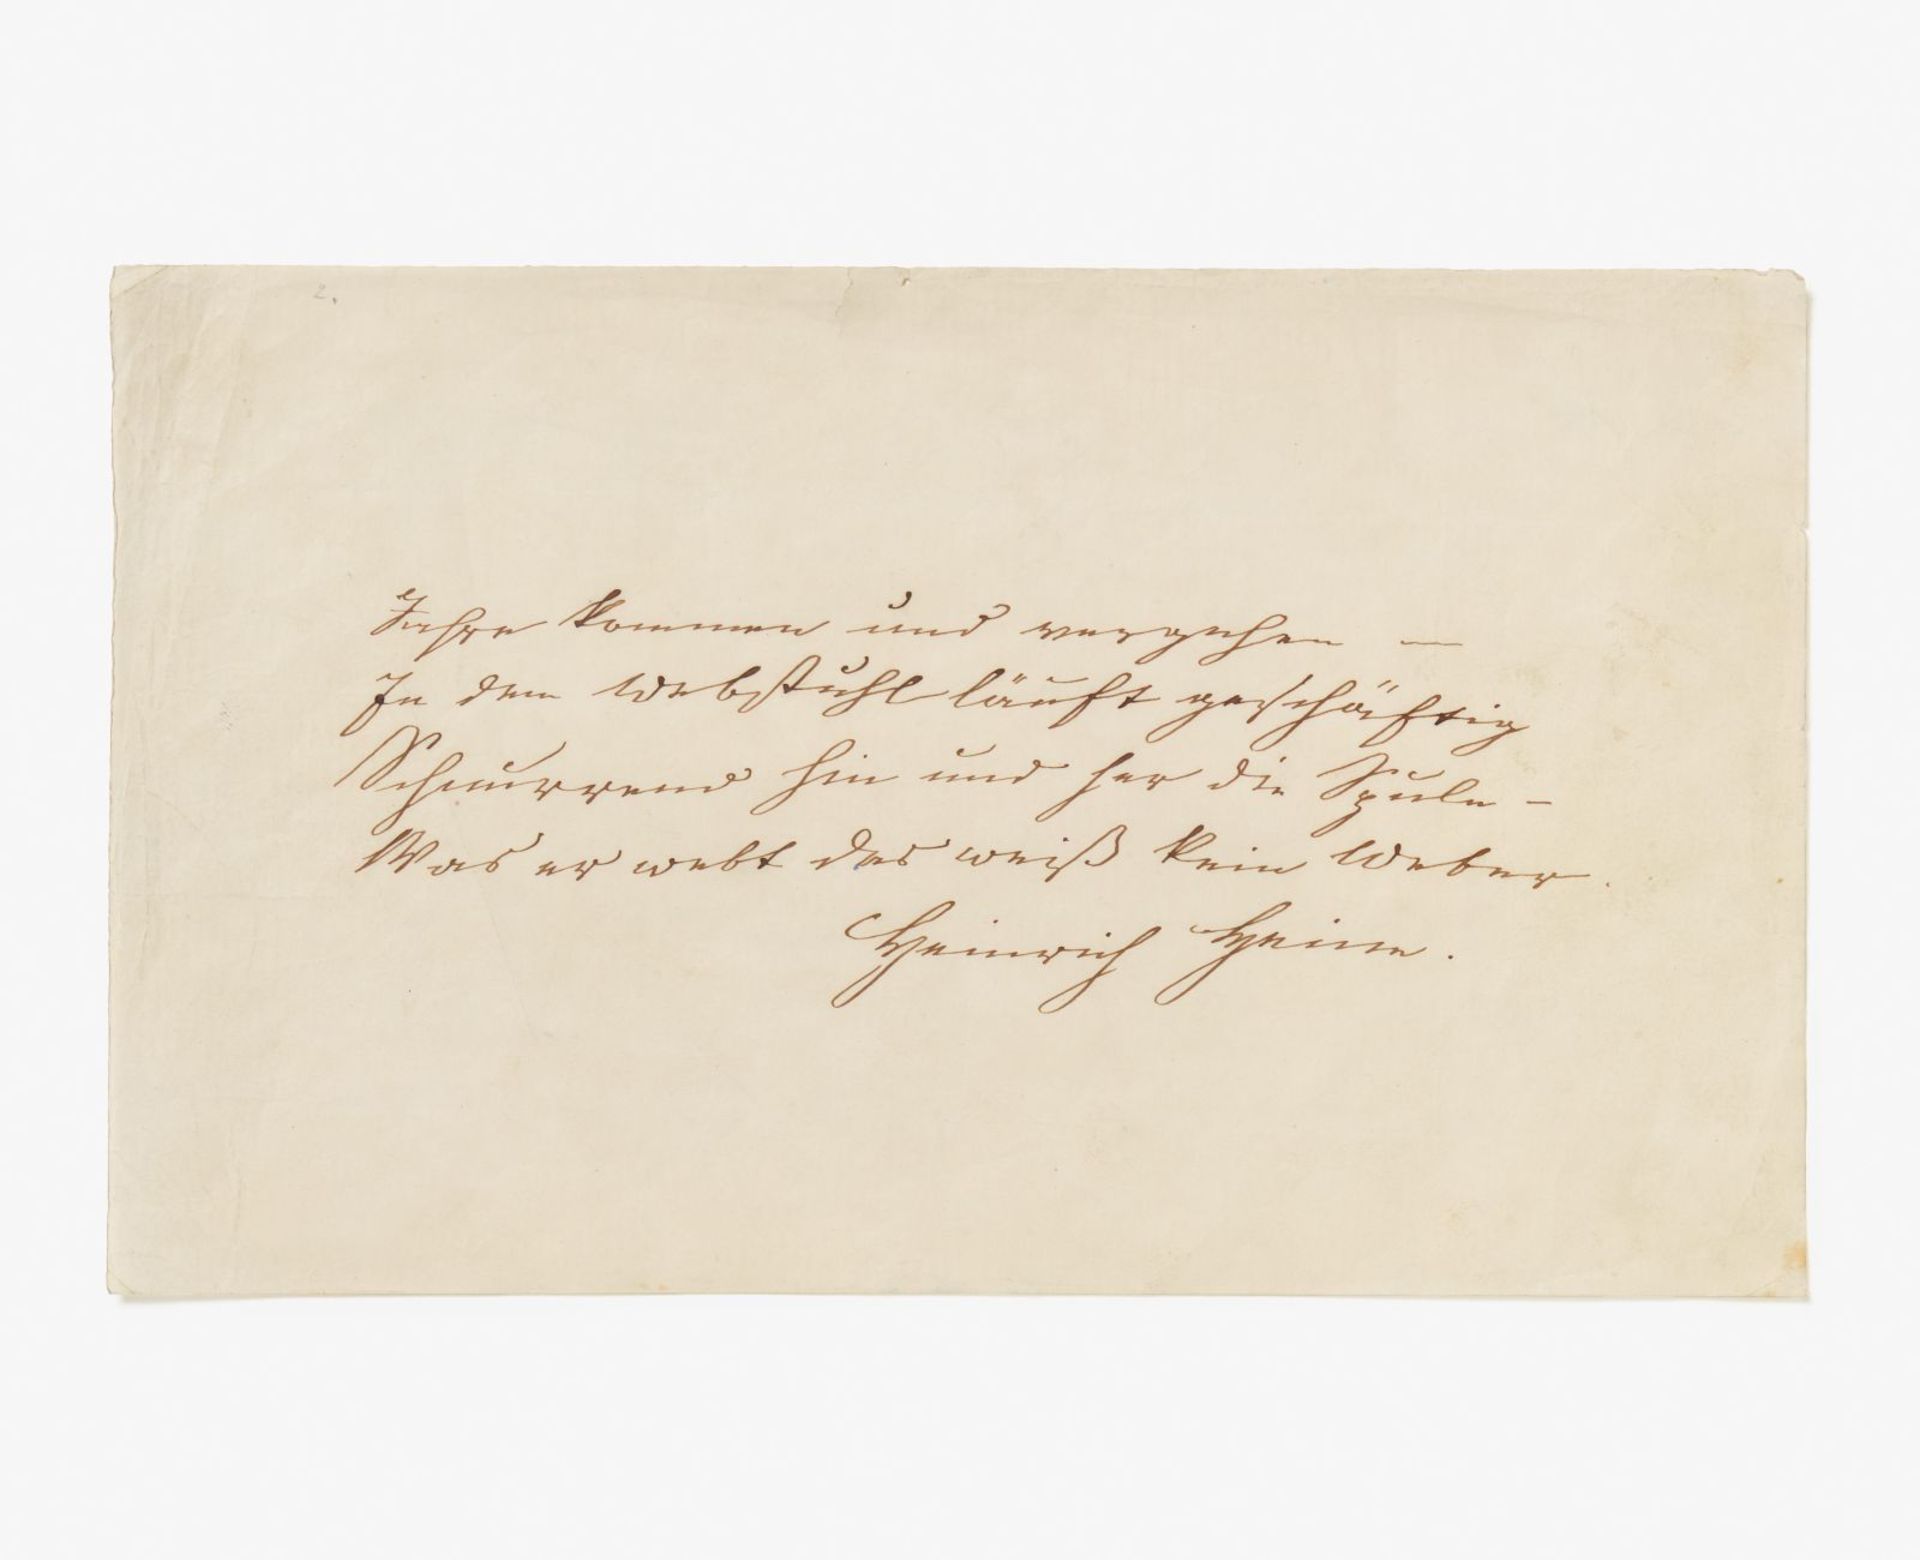 2.
Jahre kommen und vergehen —
In dem Webstuhl läuft geschäftig
Schnurrend hin und her die Spule –
Was er webt das weiß kein Weber.
Heinrich Heine.